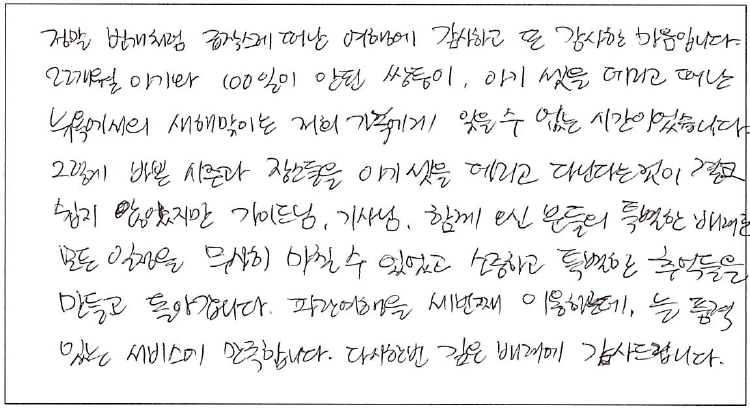 정말 번개처럼 급작스레 떠난 여행에 감사하고 또 감사한 마음입니다.
22개월 아기와 100일이 안된 쌍둥이, 아기 셋을 데리고 떠난
뉴욕에서의 새해맞이는 저희 가족에게 잊을 수 없는 시간이었습니다.
그렇게 바쁜 시즌과 장소들을 아기 셋을 데리고 다닌다는 것이 결코
쉽지 않았지만 가이드님, 기사님, 함께 하신 분들의 특별한 배려로
모든 일정을 무사히 마칠 수 있었고 소중하고 특별한 추억들을
만들고 돌아갑니다. 파란여행을 세번째 이용하는데, 늘 품격
있는 서비스에 만족합니다. 다시한번 깊은 배려에 감사드립니다.